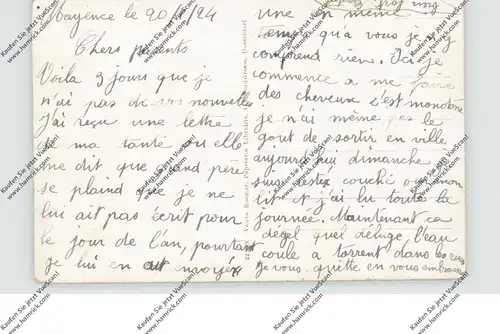 Mayence le 20/1/24
Chers parents
Voila 3 jours que je
n'ai pas de vos nouvelles
J'ai reçu une lettre
de ma tante ou elle
me dit que grand père
se plaind que je ne
lui ait pas écrit pour
le jour de l'an, pourtant
je lui en ait envoyéx
Veuve Roemer, Papeterie Librairie
une en même
temps qu'a vous je n'y
comprend rien. Ici je
commence a me faire
des cheveux c'est monotone
je n'ai même pas le
gout de sortir en ville
aujourd'hui dimanche je
suis resté couché sur mon
lit et j'ai lu toute la
journée. Maintenant ca
dégel quel déluge, l'eau
coule a torrent dans les rues
Je vous quitte en vous embrassant
Kaufen Sie jetzt VueScan!
www.hamrick.com